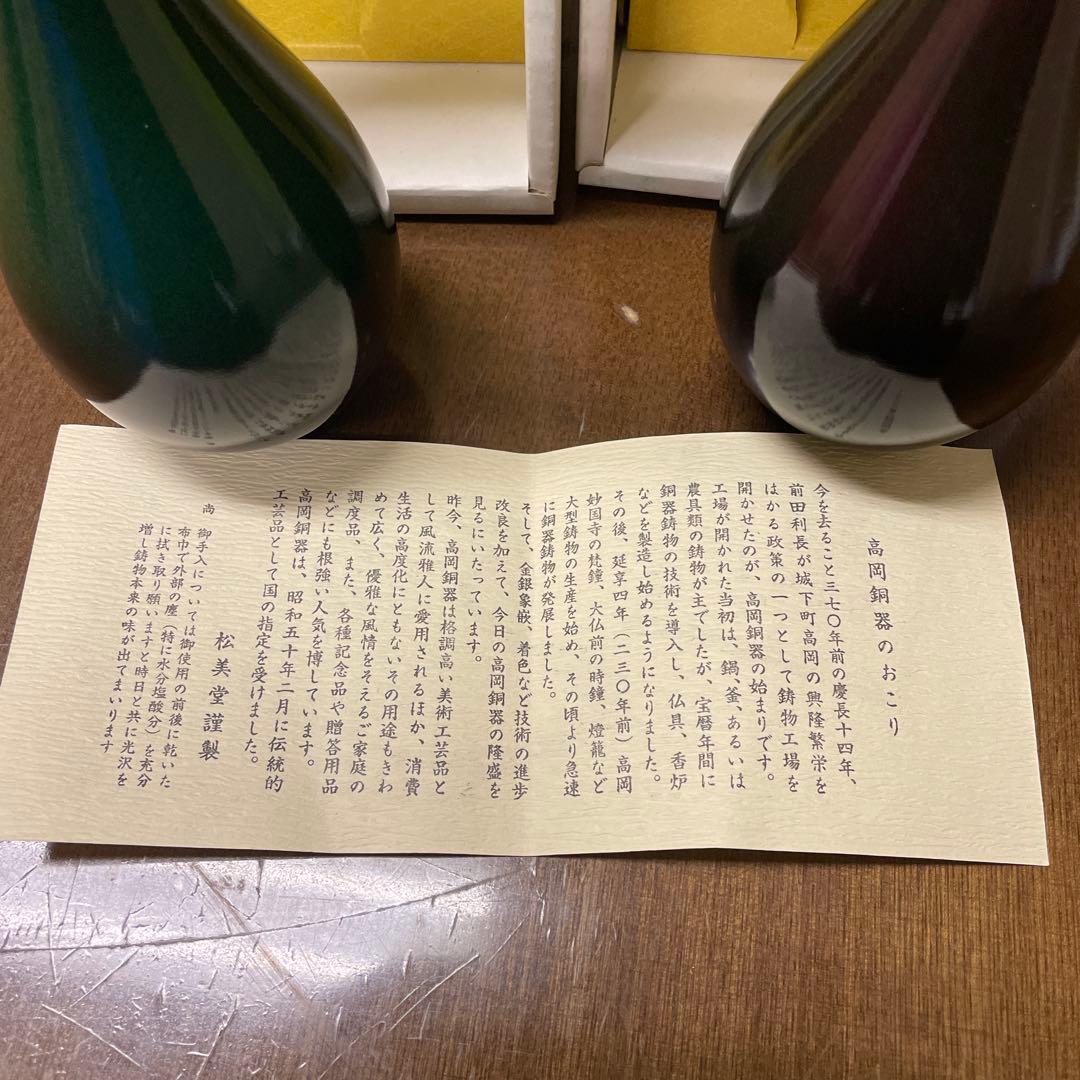 高岡銅器のおこり
今を去ること三七〇年前の慶長十四年、
前田利長が城下町高岡の興隆繁栄を
はかる政策の一つとして鋳物工場を
開かせたのが、高岡銅器の始まりです。
工場が開かれた当初は、鍋、釜、あるいは
農具類の鋳物が主でしたが、宝暦年間に
銅器鋳物の技術を導入し、仏具、香炉
などを製造し始めるようになりました。
その後、延享四年（二三〇年前）高岡
妙国寺の梵鐘、大仏前の時鐘、燈籠など
大型鋳物の生産を始め、その頃より急速
に銅器鋳物が発展しました。
そして、金銀象嵌、着色など技術の進歩
改良を加えて、今日の高岡銅器の隆盛を
見るにいたっています。
昨今、高岡銅器は格調高い美術工芸品と
して風流雅人に愛用されるほか、消費
生活の高度化にともないその用途もきわ
めて広く、優雅な風情をそえるご家庭の
調度品、また、各種記念品や贈答用品
などにも根強い人気を博しています。
高岡銅器は、昭和五十年二月に伝統的
工芸品として国の指定を受けました。
松美堂謹製
尚 御手入については御使用の前後に乾いた
布巾で外部の塵（特に水分塩酸分）を充分
に拭き取り願いますと時日と共に光沢を
増し鋳物本来の味が出てまいります